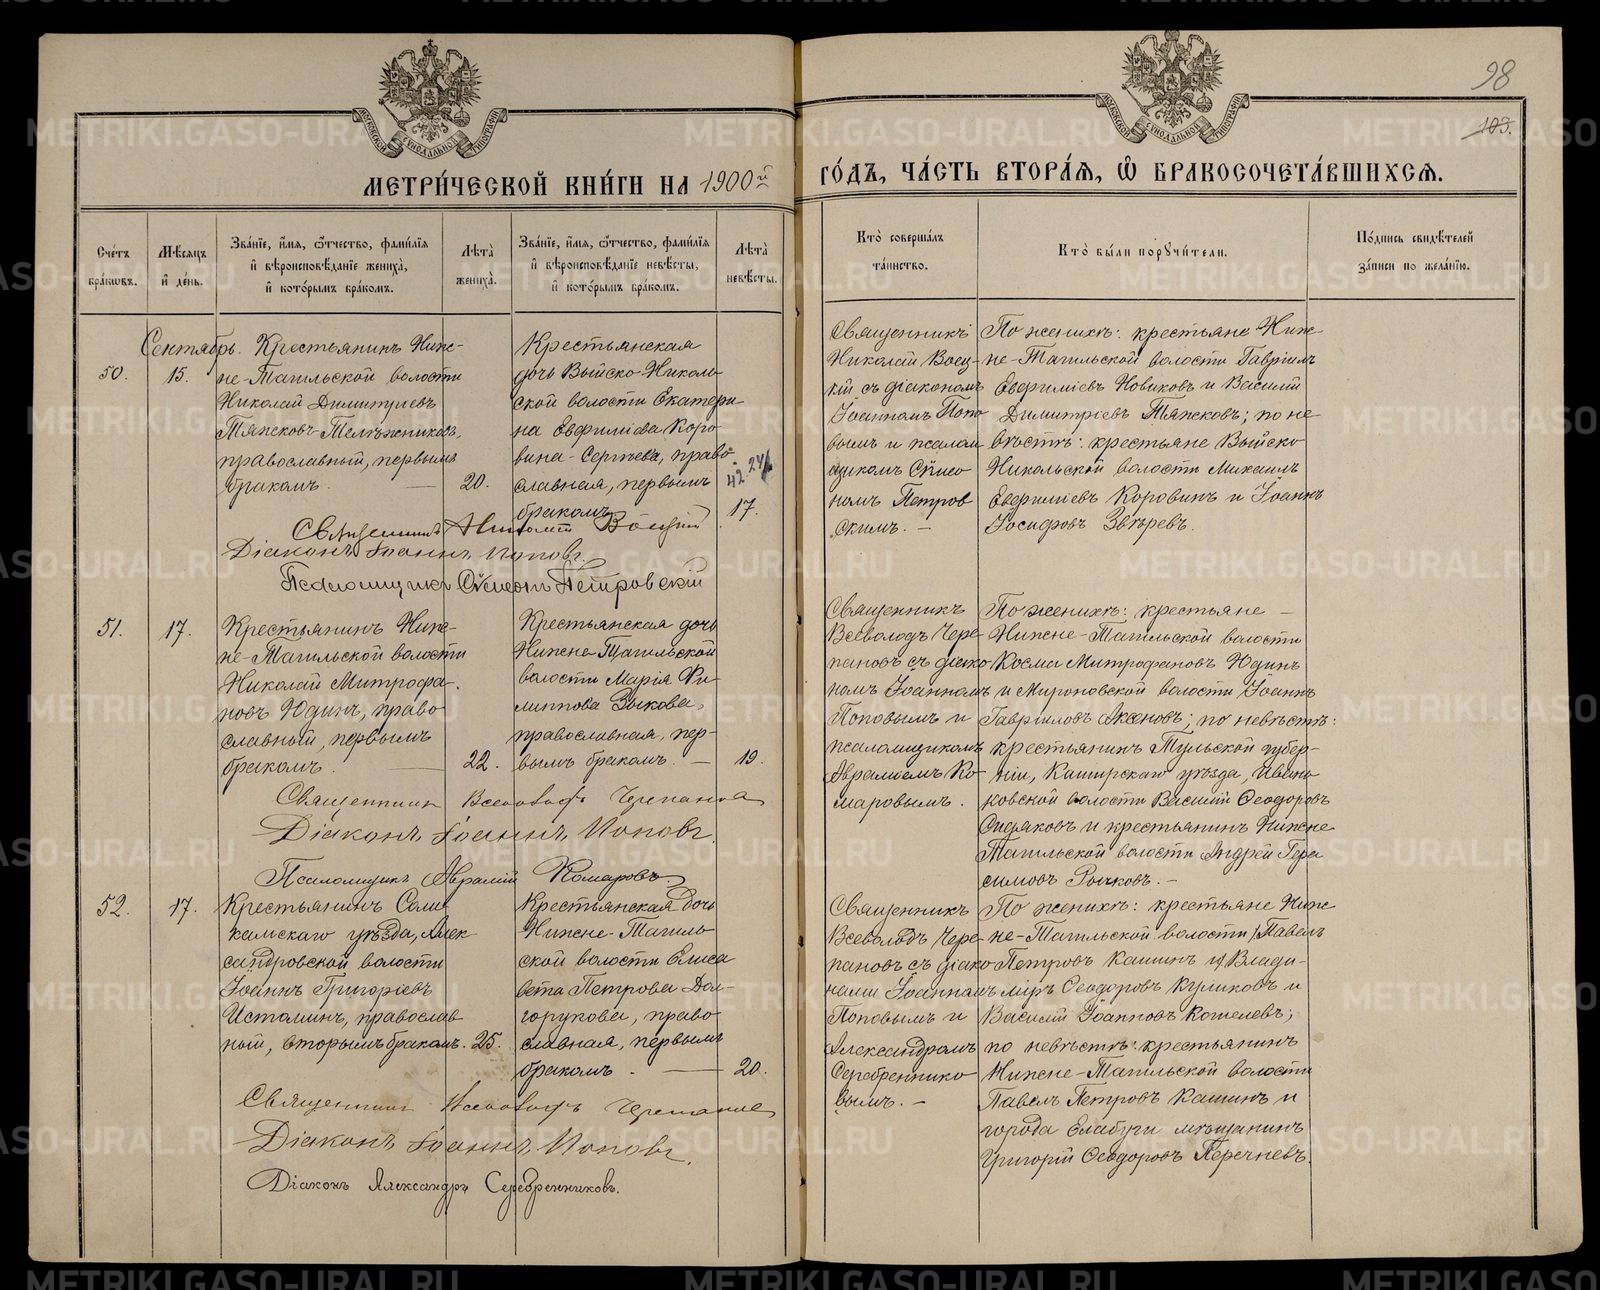 98
103.
МЕТРИ́ЧЕСКОЙ КНИ́ГИ НА 1900й ГО́ДЪ, ЧА́СТЬ ВТОРА́Я, Ѽ БРАКОСОЧЕТА́ВШИХСЯ.
Сче́тъ бра́ковъ.
Мѣ́сяцъ и҆ де́нь.
Зва́нїе, и҆́мя, ѻ҆́тчество, фами́лїя
и҆ вѣроисповѣ́данїе жениха̀,
и҆ кото́рымъ бра́комъ.
Лѣ́та жениха̀.
Зва́нїе, и҆́мя, ѻ҆́тчество, фами́лїя
и҆ вѣроисповѣ́данїе невѣ́сты,
и҆ кото́рымъ бра́комъ.
Лѣ́та невѣ́сты.
Кто̀ соверша́лъ
та́инство.
Кто̀ бы́ли порꙋчи́тели.
По́дпись свидѣ́телей
за́писи по жела́нїю.
50.
Сентябрь.
15.
Крестьянинъ Ниж-
не-Тагильской волости
Николай Димитріевъ
Тяжсковъ-Телѣжниковъ,
православный, первымъ
бракомъ. —
20.
Крестьянская
дочь Выйско-Николь-
ской волости Екатери-
на Евфиміева Коро-
вина-Сергѣева, право-
славная, первымъ
бракомъ.
17.
Священникъ
Николай Воец-
кій съ діакономъ
Іоанномъ Попо-
вымъ и псалом-
щикомъ Симео-
номъ Петров-
скимъ. —
По женихѣ: крестьяне Ниж-
не-Тагильской волости Гавріилъ
Евфиміевъ Новиковъ и Василій
Димитріевъ Тяжсковъ; по не-
вѣстѣ: крестьяне Выйско-
Никольской волости Михаилъ
Евфиміевъ Коровинъ и Іоаннъ
Іосифовъ Звѣревъ.
Священникъ Николай Воецкій
Діаконъ Іоаннъ Поповъ.
Псаломщикъ Симеонъ Петровскій
51.
17.
Крестьянинъ Ниж-
не-Тагильской волости
Николай Митрофа-
новъ Юдинъ, право-
славный, первымъ
бракомъ. —
22.
Крестьянская дочь
Нижне-Тагильской
волости Марія Фи-
липпова Зыкова,
православная, пер-
вымъ бракомъ. —
19.
Священникъ
Всеволодъ Чере-
пановъ съ діако-
номъ Іоанномъ
Поповымъ и
псаломщикомъ
Авраміемъ Ко-
маровымъ.
По женихѣ: крестьяне —
Нижне-Тагильской волости
Косма Митрофановъ Юдинъ
и Мироновской волости Іоаннъ
Гавріиловъ Аксеновъ; по невѣстѣ:
крестьянинъ Тульской губер-
ніи, Каширскаго уѣзда, Ивань-
ковской волости Василій Ѳеодоровъ
и крестьянинъ Нижне-
Тагильской волости Андрей Гера-
симовъ Рычковъ. —
Священникъ Всеволодъ Черепановъ
Діаконъ Іоаннъ Поповъ.
Псаломщикъ Аврамій Комаровъ
52.
17.
Крестьянинъ Соли-
камскаго уѣзда, Алек-
сандровской волости
Іоаннъ Григоріевъ
Истоминъ, православ-
ный, вторымъ бракомъ.
25.
Крестьянская дочь
Нижне-Тагиль-
ской волости Елиса-
вета Петрова Дол-
горукова, право-
славная, первымъ
бракомъ. —
20.
Священникъ
Всеволодъ Чере-
пановъ съ діако-
нами Іоанномъ
Поповымъ и
Александромъ
Серебреннико-
вымъ. —
По женихѣ: крестьяне Ниж-
не-Тагильской волости Павелъ
Петровъ Кашинъ и Влади-
міръ Ѳеодоровъ Куликовъ и
Василій Іоанновъ Кошелевъ;
по невѣстѣ: крестьянинъ
Нижне-Тагильской волости
Павелъ Петровъ Кашинъ и
города Елабуги мѣщанинъ
Григорій Ѳеодоровъ Перечневъ.
Священникъ Всеволодъ Черепановъ
Діаконъ Іоаннъ Поповъ.
Діаконъ Александръ Серебренниковъ.
METRIKI.GASO-URAL.RU